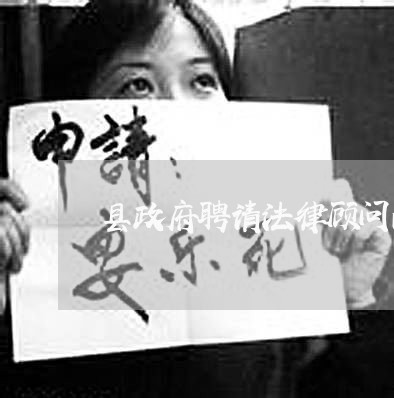 申請：
县政府聘请法律顾问
安乐死